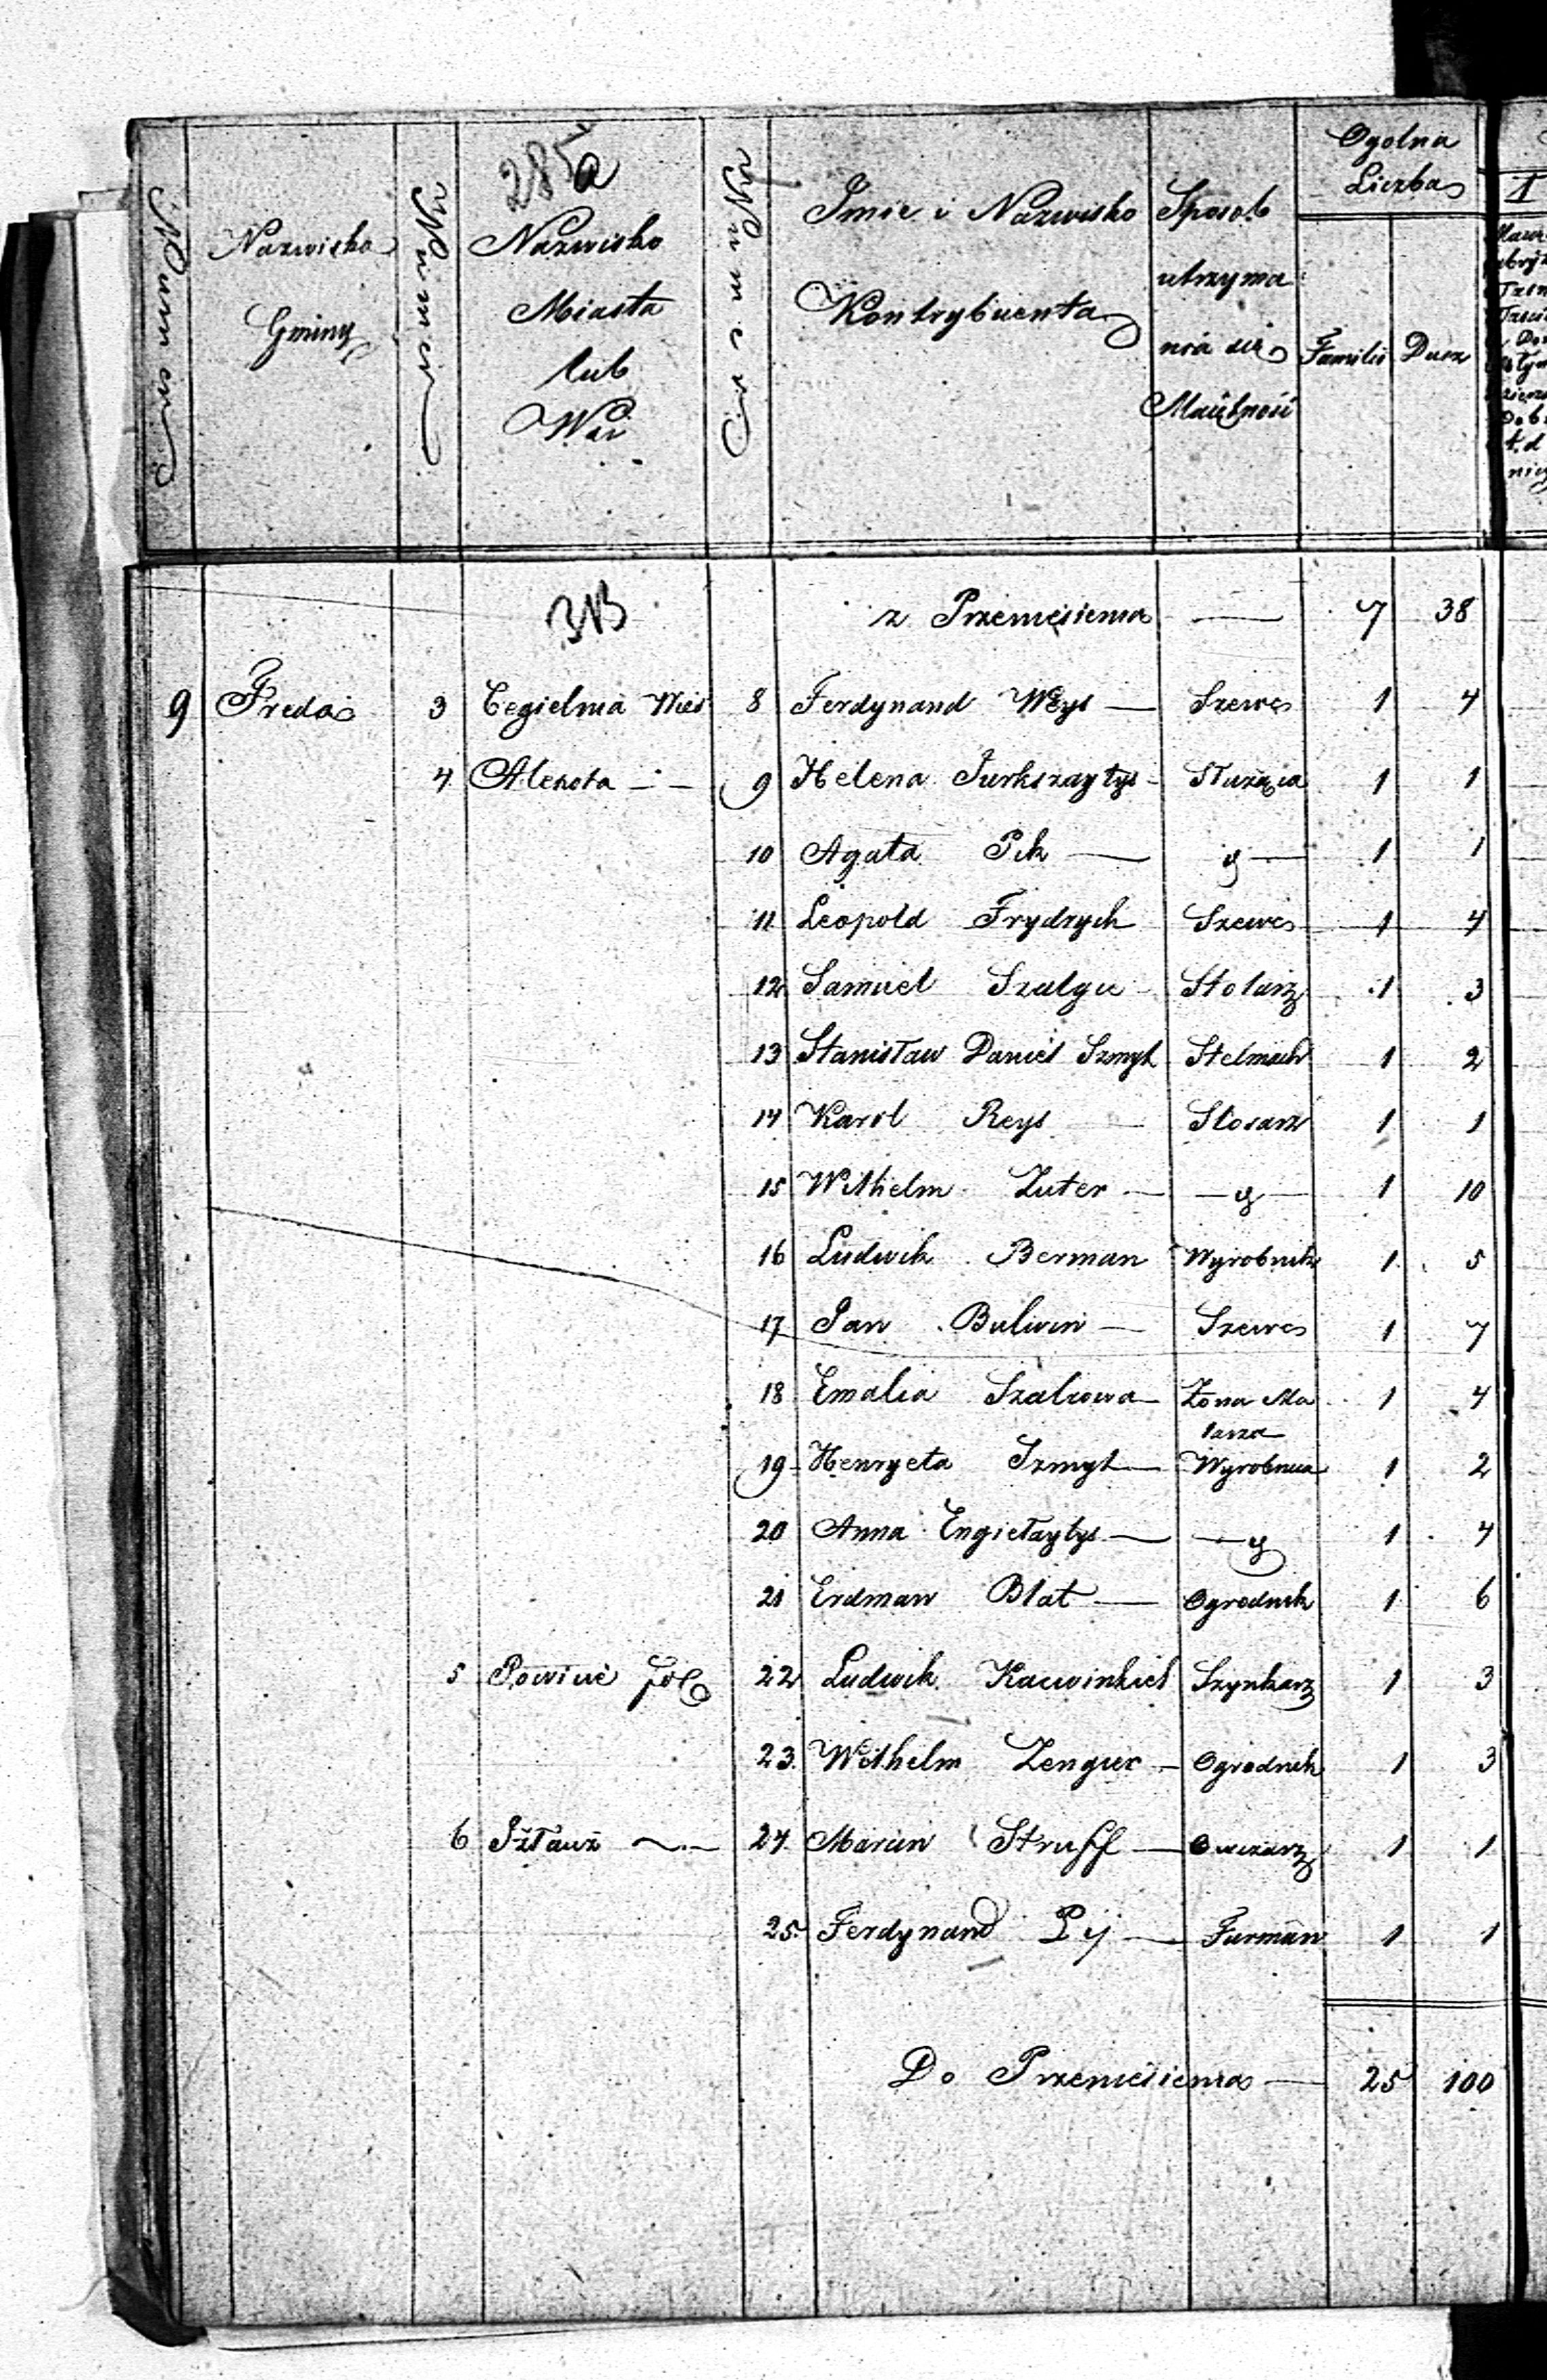 285a
Numer
Nazwisko Gminy
Numer
Nazwisko Miasta lub Wsi
Numer
Imie i Nazwisko Kontrybuenta
Sposob utrzyma nia się Maiętność
Ogolna Liczba
Familii Dusz
1
313 z Przeniesienia — 7 38
9 Freda 3 Cegielnia Wieś 8 Ferdynand Weys — Szewc 1 4
4 Alexota - - 9 Helena Jurkszaytys - Służąca 1 1
10 Agata Pik — y — 1 1
11 Leopold Frydrych Szewc 1 4
12 Samuel Szulgie Stolarz 1 3
13 Stanisław Daniel Szmyt Stelmach 1 2
14 Karol Reys — Slosarz 1 1
15 Wilhelm Luter — — y — 1 10
16 Ludwik Berman Wyrobnik 1 5
17 Jan Buliwin — Szewc 1 7
18 Emalia Szalcowa — Żona Ma 1 4
larza
19 Henryeta Szmyt — Wyrobnica 1 2
20 Anna Engiełaytys — — y 1 4
21 Erdman Blat — Ogrodnik 1 6
5 Powicie fol 22 Ludwik Kacwinkiel Szynkarz 1 3
23. Wilhelm Zengier — Ogrodnik 1 3
6 Iżłauż — 24. Marcin Struff — Owczarz 1 1
25. Ferdynand Pij — Furman 1 1
Do Przeniesienia — 25 100